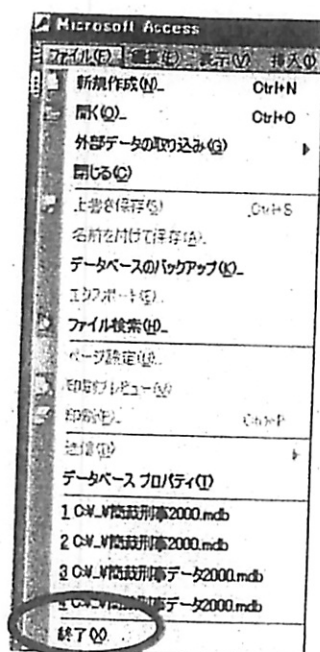 Microsoft Access
ファイル(F) 編集(E) 表示(V) 挿入(I)
新規作成(N)... Ctrl+N
開く(O)... Ctrl+O
外部データの取り込み(G)
閉じる(C)
上書き保存(S) Ctrl+S
名前を付けて保存(A)...
データベースのバックアップ(K)...
エクスポート(E)...
ファイル検索(H)...
ページ設定(U)...
印刷プレビュー(V)
印刷(P)... Ctrl+P
送信(D)
データベース プロパティ(I)
1 C:¥...¥簡裁刑事2000.mdb
2 C:¥...¥簡裁刑事2000.mdb
3 C:¥...¥簡裁刑事データ2000.mdb
4 C:¥...¥簡裁刑事データ2000.mdb
終了(X)